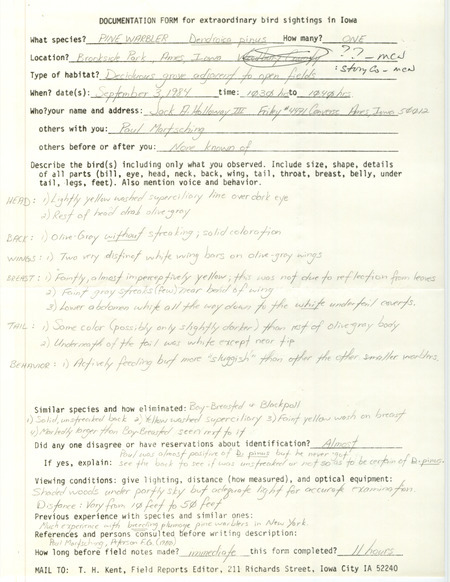 DOCUMENTATION FORM for extraordinary bird sightings in Iowa
What species? PINE WARBLER Dendroica pinus How many? ONE
Location? Brookside Park, Ames, Iowa ?? - MCN
: Story Co - MCN
Type of habitat? Deciduous grove adjacent to open fields
When? date(s): September 3, 1984 time: 1030 hr to 1040 hrs
Who?your name and address: Jack A. Holloway III Friley #4491 Converse Ames, Iowa 50012
others with you: Paul Martsching
others before or after you: None known of
Describe the bird(s) including only what you observed. Include size, shape, details
of all parts (bill, eye, head, neck, back, wing, tail, throat, breast, belly, under
tail, legs, feet). Also mention voice and behavior.
HEAD: 1) Lightly yellow washed superciliary line over dark eye
2) Rest of head drab olive-grey
BACK: 1) Olive-Gray without streaking; solid coloration
WINGS: 1) Two very distinct white wing bars on olive-grey wings
BREAST: 1) Faintly, almost imperceptively yellow; this was not due to reflection from leaves
2) Faint gray streaks (few) near bend of wing
3) Lower abdomen white all the way down to the white undertail coverts.
TAIL: 1) Same color (possibly only slightly darker) than rest of olive grey body
2) Underneath of the tail was white except near tip
BEHAVIOR: 1) Actively feeding but more "sluggish" than other the other smaller warblers.
Similar species and how eliminated: Bay-Breasted + Blackpoll
1) Solid, unstreaked back 2) Yellow washed superciliary 3) Faint yellow wash on breast
4) Markedly larger than Bay-Breasted seen next to it
Did any one disagree or have reservations about identification? Almost
Paul was almost positive of D. pinus but he never got
If yes, explain: see the back to see it was unstreaked or not so as to be certain of D. pinus.
Viewing conditions: give lighting, distance (how measured), and optical equipment:
Shaded woods under partly sky but adequate light for accurate examination.
Distance: Vary from 10 feet to 50 feet
Previous experience with species and similar ones:
Much experience with breeding plumage pine warblers in New York
References and persons consulted before writing description:
Paul Martsching, Peterson F.G. (1980)
How long before field notes made? immediate this form completed? 11 hours
MAIL TO: T. H. Kent, Field Reports Editor, 211 Richards Street, Iowa City IA 52240